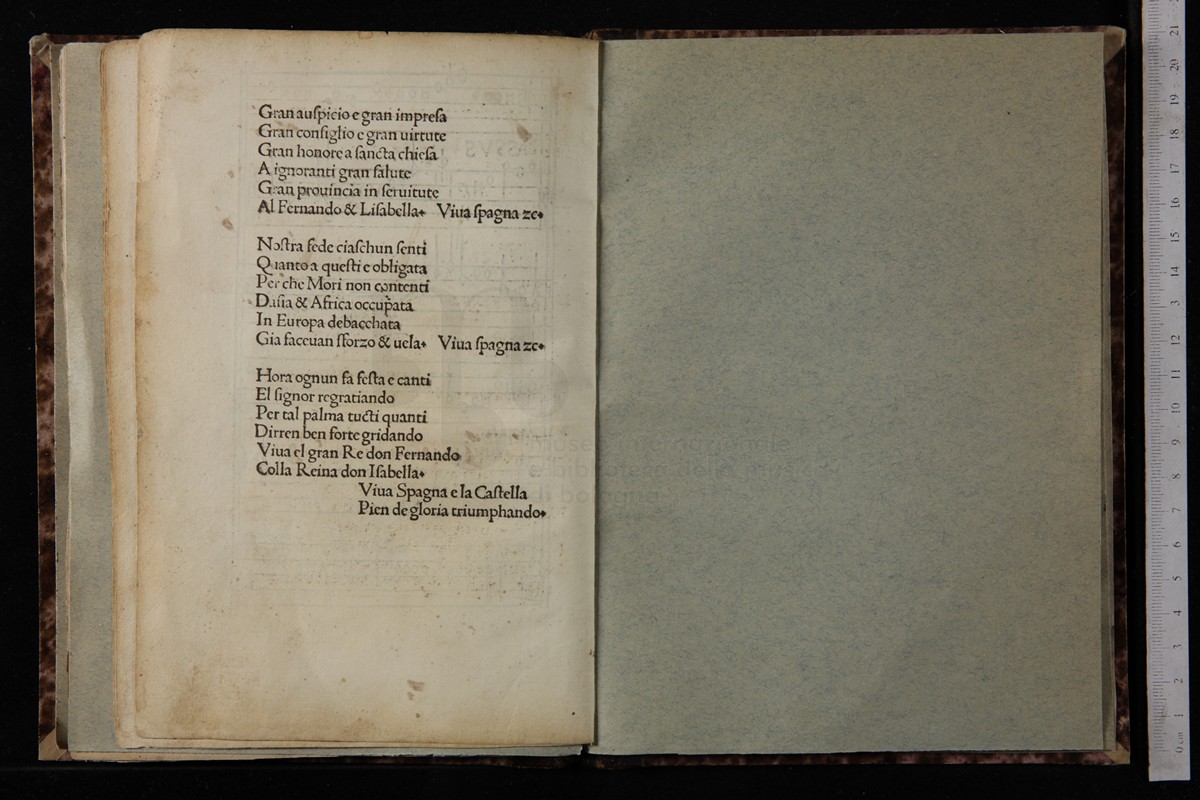 Gran auſpicio e gran impreſa
Gran conſiglio e gran uirtute
Gran honore a ſancta chieſa
A ignoranti gran ſalute
Gran prouincia in ſeruitute
Al Fernando & Liſabella. Viua ſpagna ⁊c.
Noſtra fede ciaſchun ſenti
Quanto a queſti e obligata
Per che Mori non contenti
Daſia & Africa occupata
In Europa debacchata
Gia faceuan sforzo & uela. Viua ſpagna ⁊c.
Hora ognun fa feſta e canti
El ſignor regratiando
Per tal palma tucti quanti
Dirren ben forte gridando
Viua el gran Re don Fernando
Colla Reina don Iſabella.
Viua Spagna e la Caſtella
Pien de gloria triumphando.
museo internazionale
e biblioteca della musica
di bologna
0 cm 1 2 3 4 5 6 7 8 9 10 11 12 13 14 15 16 17 18 19 20 21